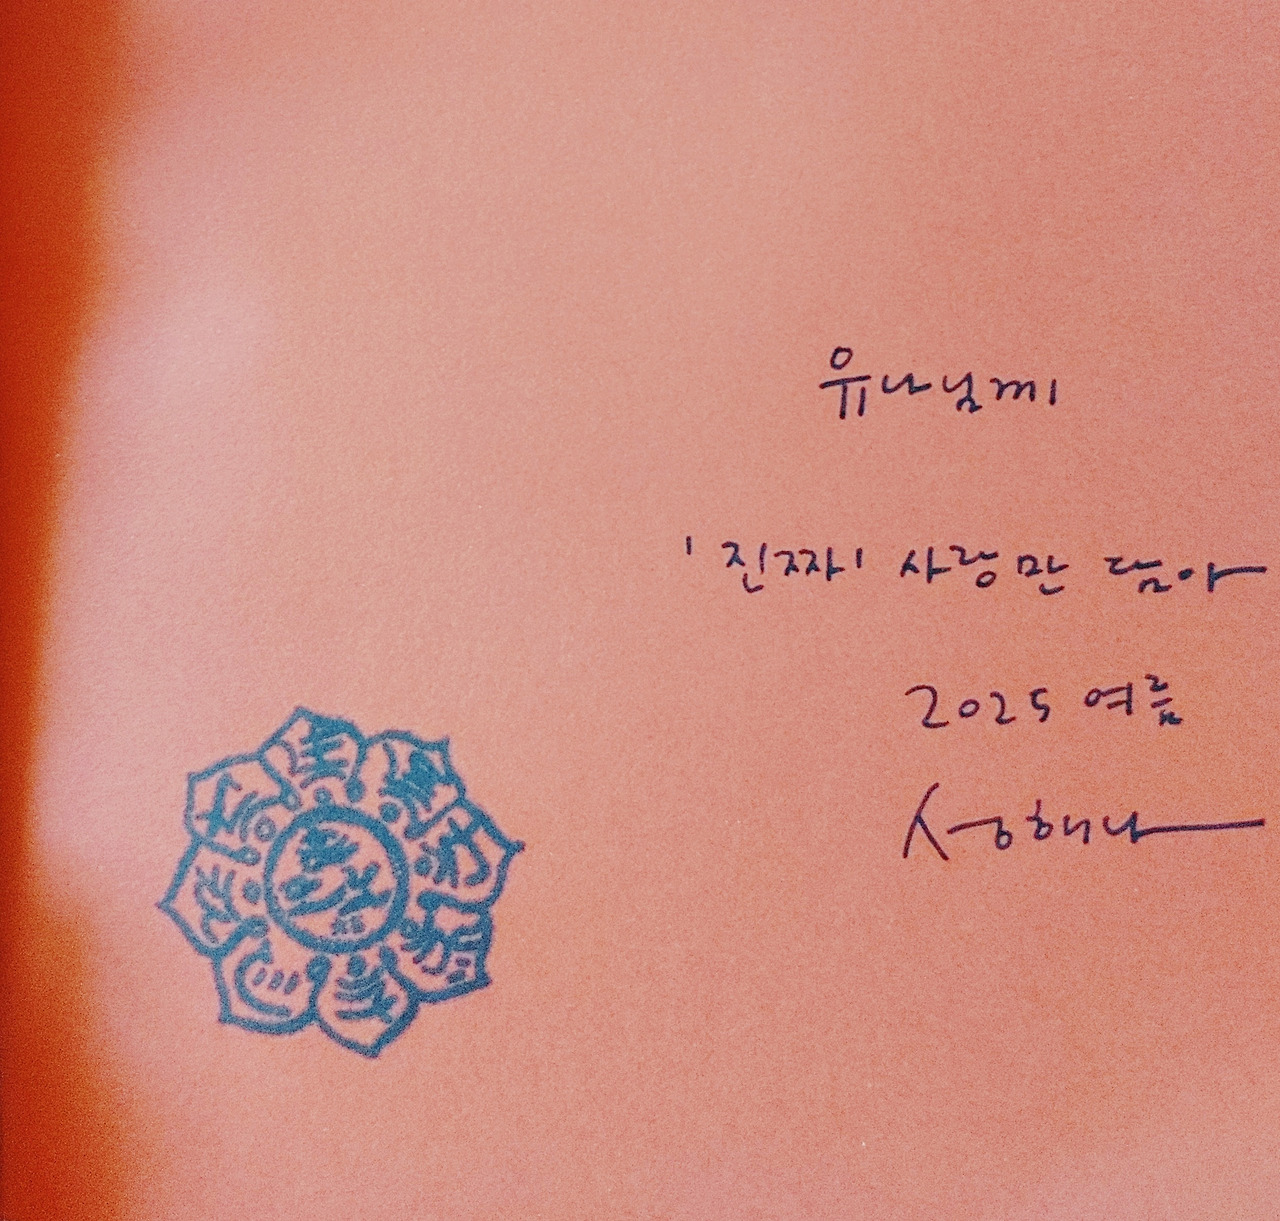 유나님께
'진짜' 사랑만 담아
2025 여름
성해나